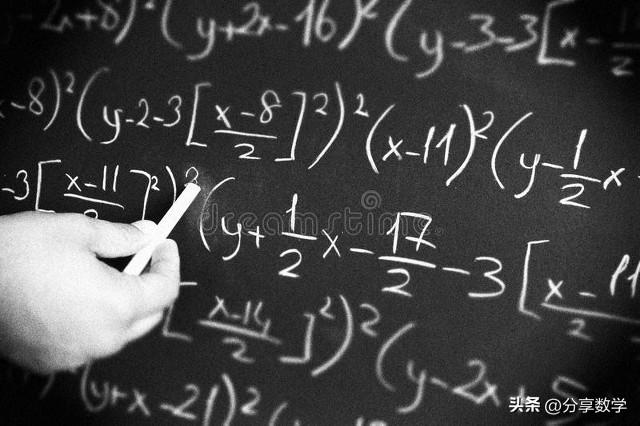 -2x+8)²(y+2x-16)²(y-3-3[x-
-8)²(y-2-3[x-8/2]²)²(x-11)²(y-1/2x
-3[x-11/2]²)²(y+1/2x-17/2-3[x-11/2
[x-14/2]²)²(
(y+x-21)²(y-2x+5
dreamstime
头条 @分享数学